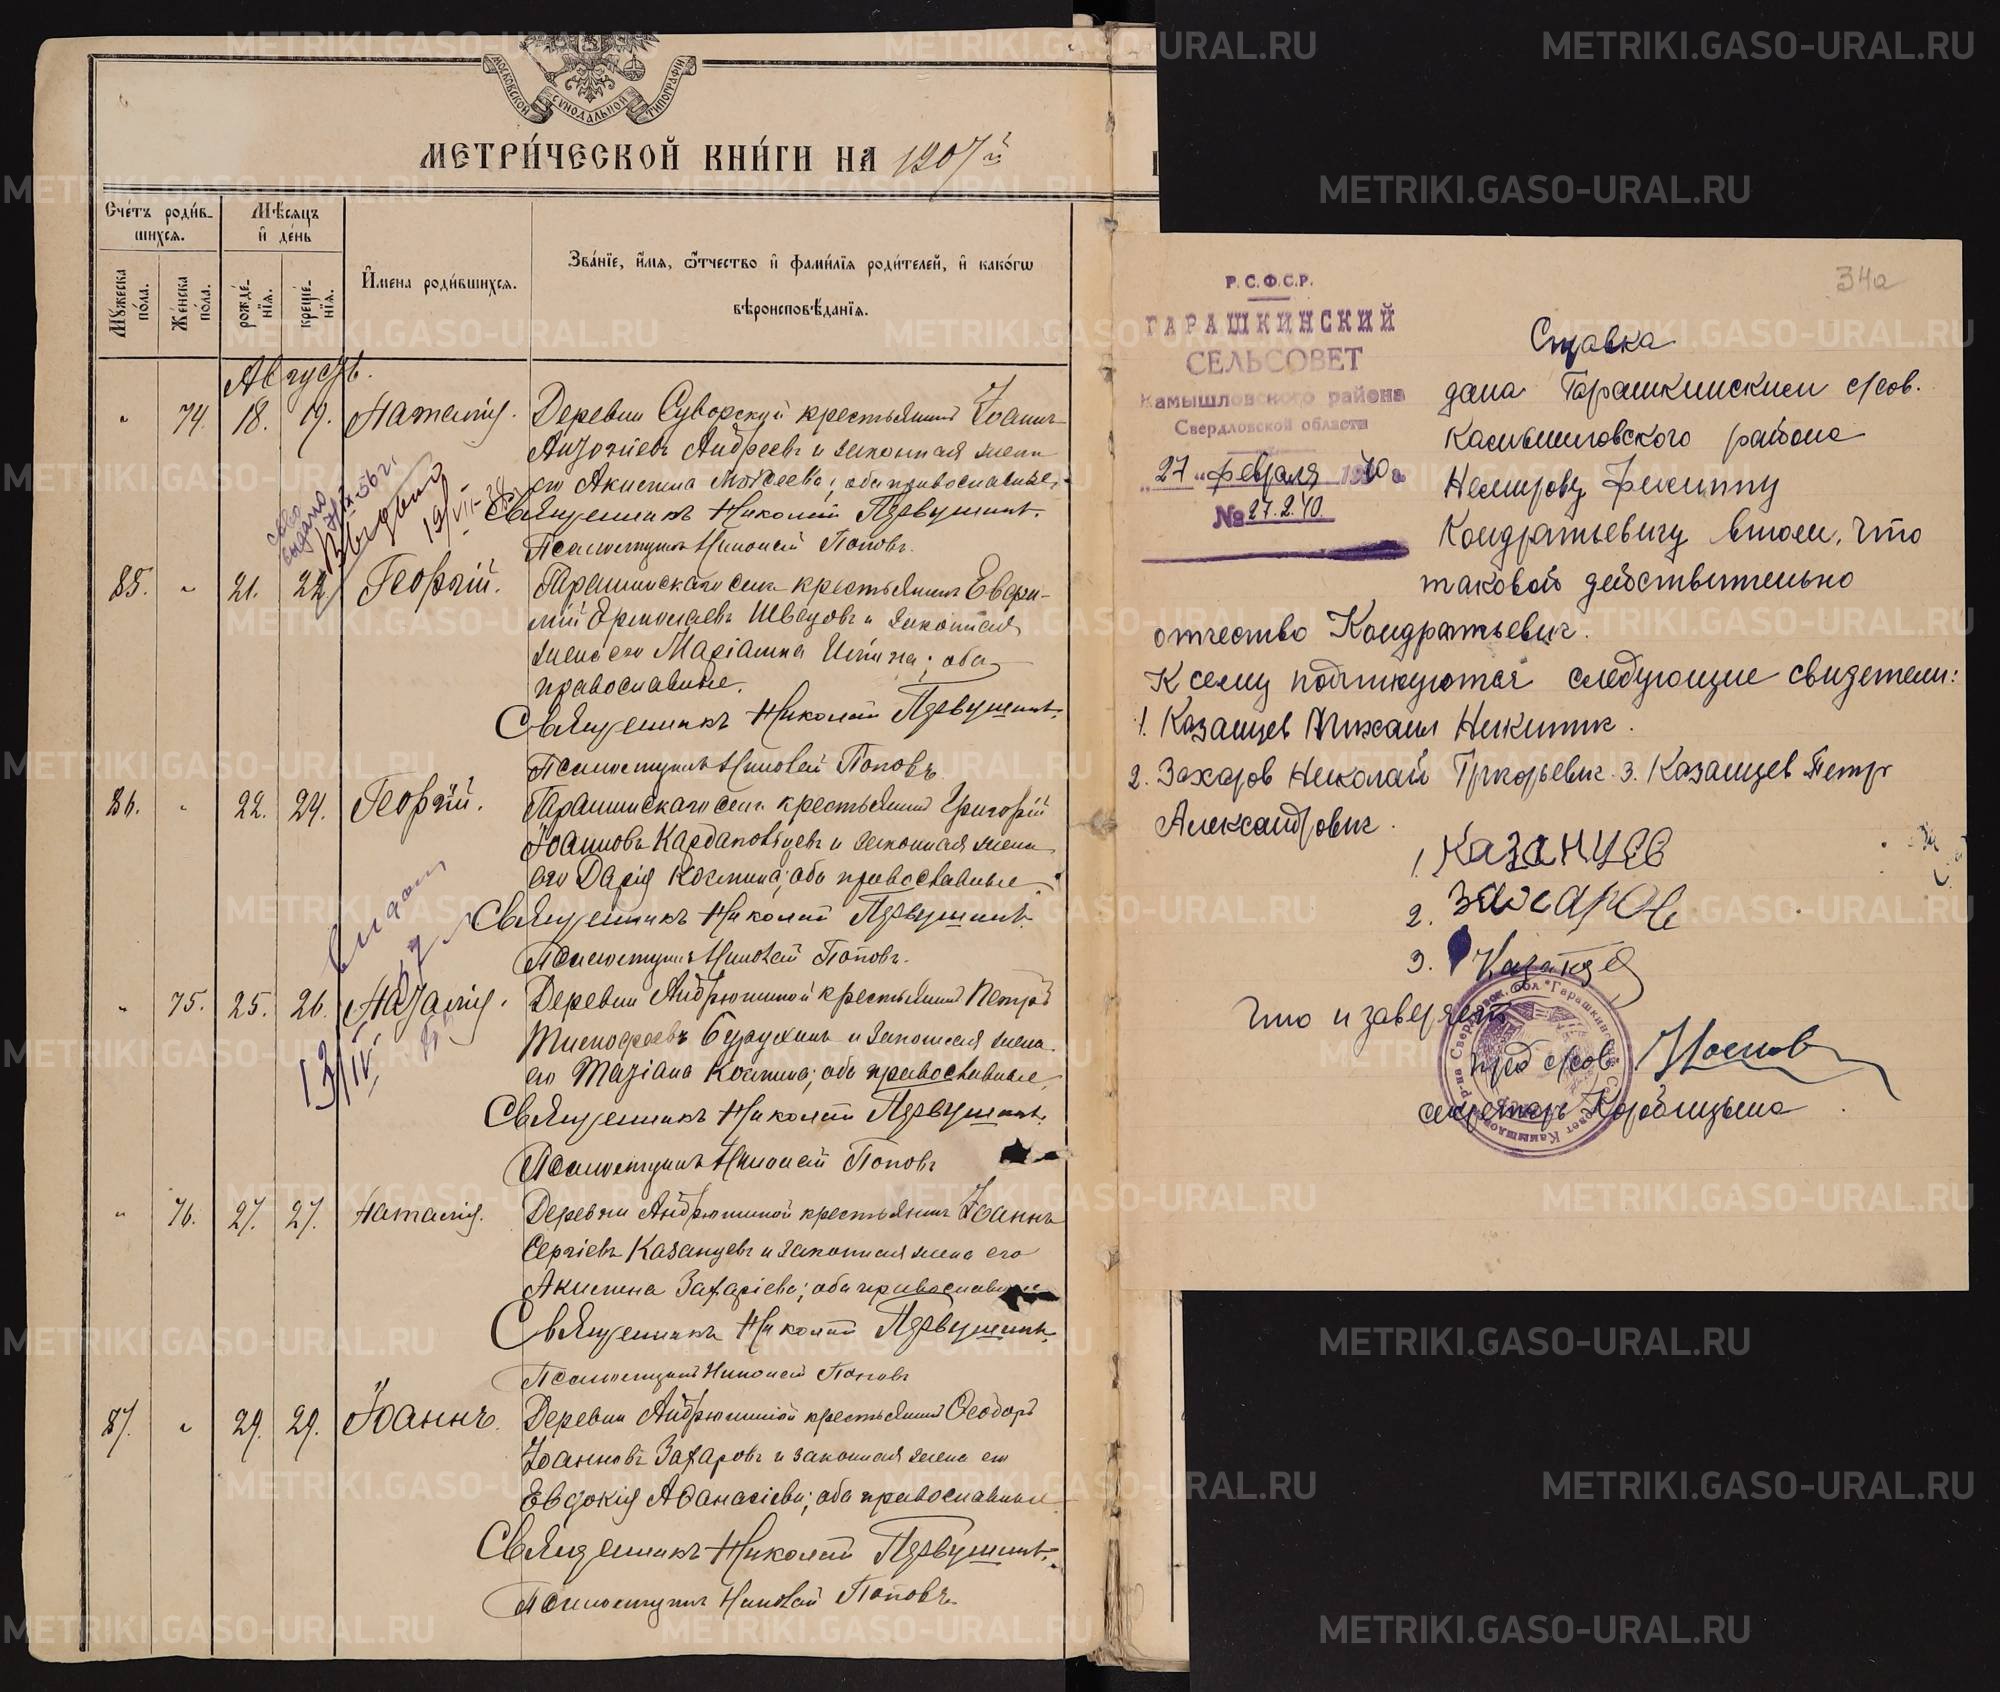 МОСКОВСКОЙ СУНОДАЛЬНОЙ ТИПОГРАФІИ
МЕТРИ́ЧЕСКОЙ КНИ́ГИ НА 1907 й
Сче́тъ роди́в-
шихся.
Му́жеска
по́ла.
Же́нска
по́ла.
Мѣ́сяцъ
и҆ де́нь
рожде́-
нїѧ.
креще́-
нїѧ.
И҆мена роди́вшихся.
Зва́нїе, и҆́мѧ, ѻ҆́тчество и҆ фами́лїѧ роди́телей, и҆ како́гѡ
вѣроисповѣ́данїѧ.
Августъ.
" 74. 18. 19. Наталія. Деревни Суворской крестьянинъ Іоаннъ
Андреевъ и законная жена
его Акилина Моѵсеева; оба православные.
Священникъ Николай Первушинъ.
Псаломщикъ Николай Поповъ.
выдано
19/VII-38
85. " 21. 22. Георгій. Гарашкинскаго села крестьянинъ Евфи-
мій Ермолаевъ Швецовъ и законная
жена его Маріамна Ильина; оба
православные.
Священникъ Николай Первушинъ.
Псаломщикъ Николай Поповъ.
86. " 22. 24. Георгій. Гарашкинскаго села крестьянинъ Григорій
Іоанновъ и законная жена
его Дарія Козмина; оба православные.
Священникъ Николай Первушинъ.
Псаломщикъ Николай Поповъ.
13/IV
" 75. 25. 26. Наталія. Деревни Андрюшиной крестьянинъ Петръ
Тимофеевъ и законная жена
его Татіана Козмина; оба православные.
Священникъ Николай Первушинъ.
Псаломщикъ Николай Поповъ
" 76. 27. 27. Наталія. Деревни Андрюшиной крестьянинъ Іоаннъ
Сергіевъ Казанцевъ и законная жена его
Акилина Захаріева; оба православные
Священникъ Николай Первушинъ.
Псаломщикъ Николай Поповъ
87. " 29. 29. Іоаннъ. Деревни Андрюшиной крестьянинъ Ѳеодоръ
Іоанновъ Захаровъ и законная жена его
Евдокія Аѳанасіева; оба православные
Священникъ Николай Первушинъ.
Псаломщикъ Николай Поповъ.
34а
Р.С.Ф.С.Р.
ГАРАШКИНСКИЙ
СЕЛЬСОВЕТ
Камышловского района
Свердловской области
"27" февраля 1940 г
№ 27.2.40.
Справка
дана Гарашкинским с/сов.
Камышловского района
Немирову Филиппу
Кондратьевичу в том, что
таковой действительно
отчество Кондратьевич.
К сему подпикуются следующие свидетели:
1. Казанцев Михаил Никитик.
2. Захаров Николай Григорьевич. 3. Казанцев Петр
Александрович.
1. Казанцев
2. Захаров
3. Казанцев
Что и заверяет
пред с/сов Носков
секретарь Коробицына
METRIKI.GASO-URAL.RU